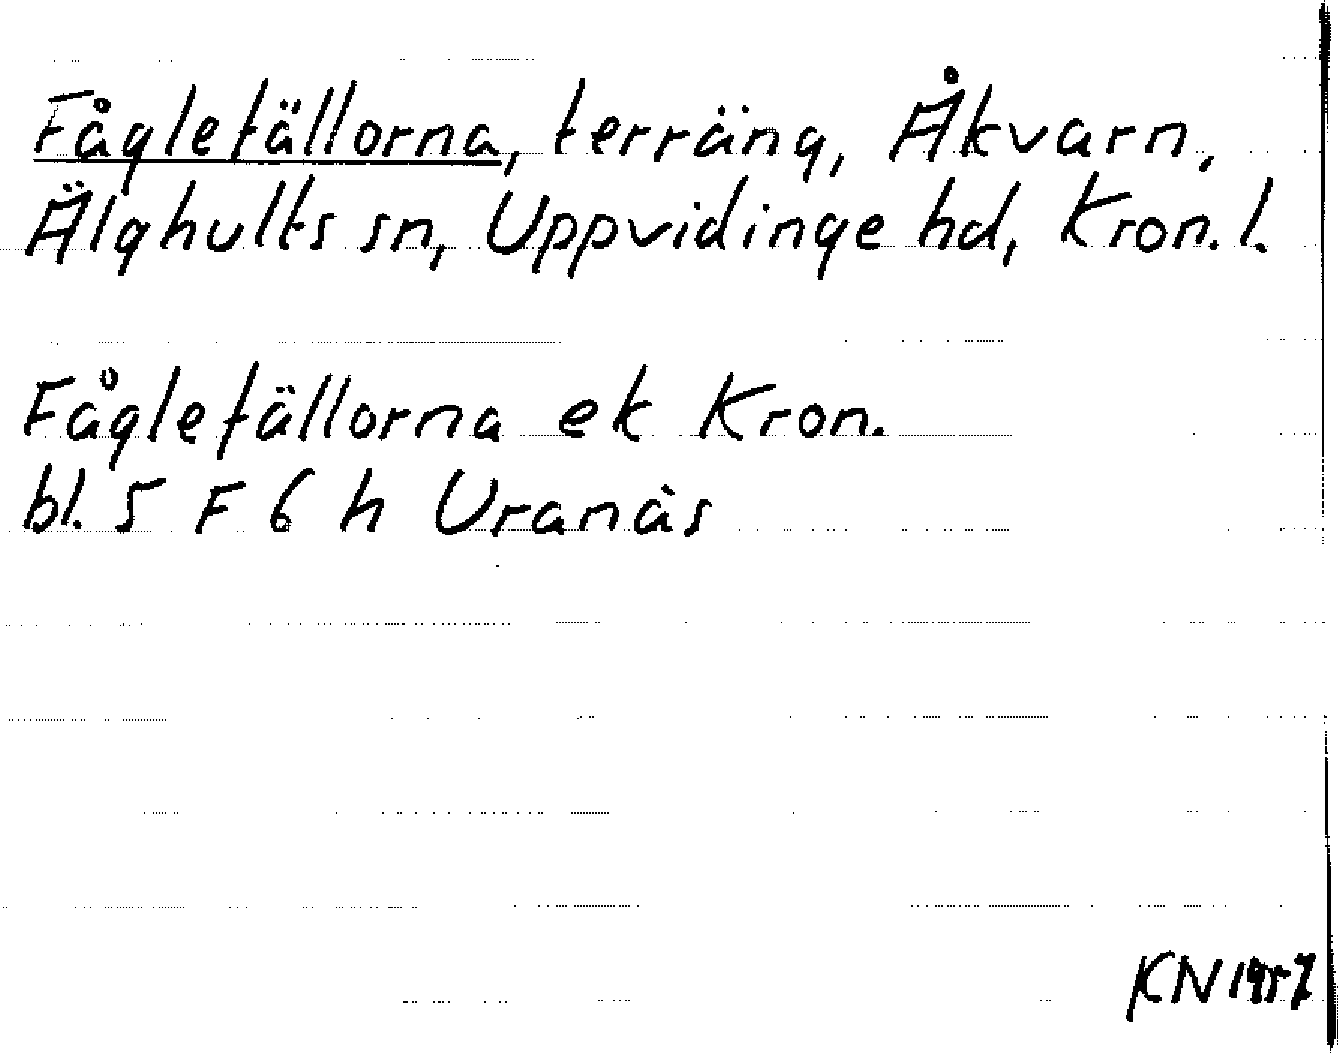 Fåglefällorna, terräng, Åkvarn,
Älghults sn, Uppvidinge hd, Kron. l.
Fåglefällorna ek Kron.
bl. 5 F 6 h Uranäs
KN 1957